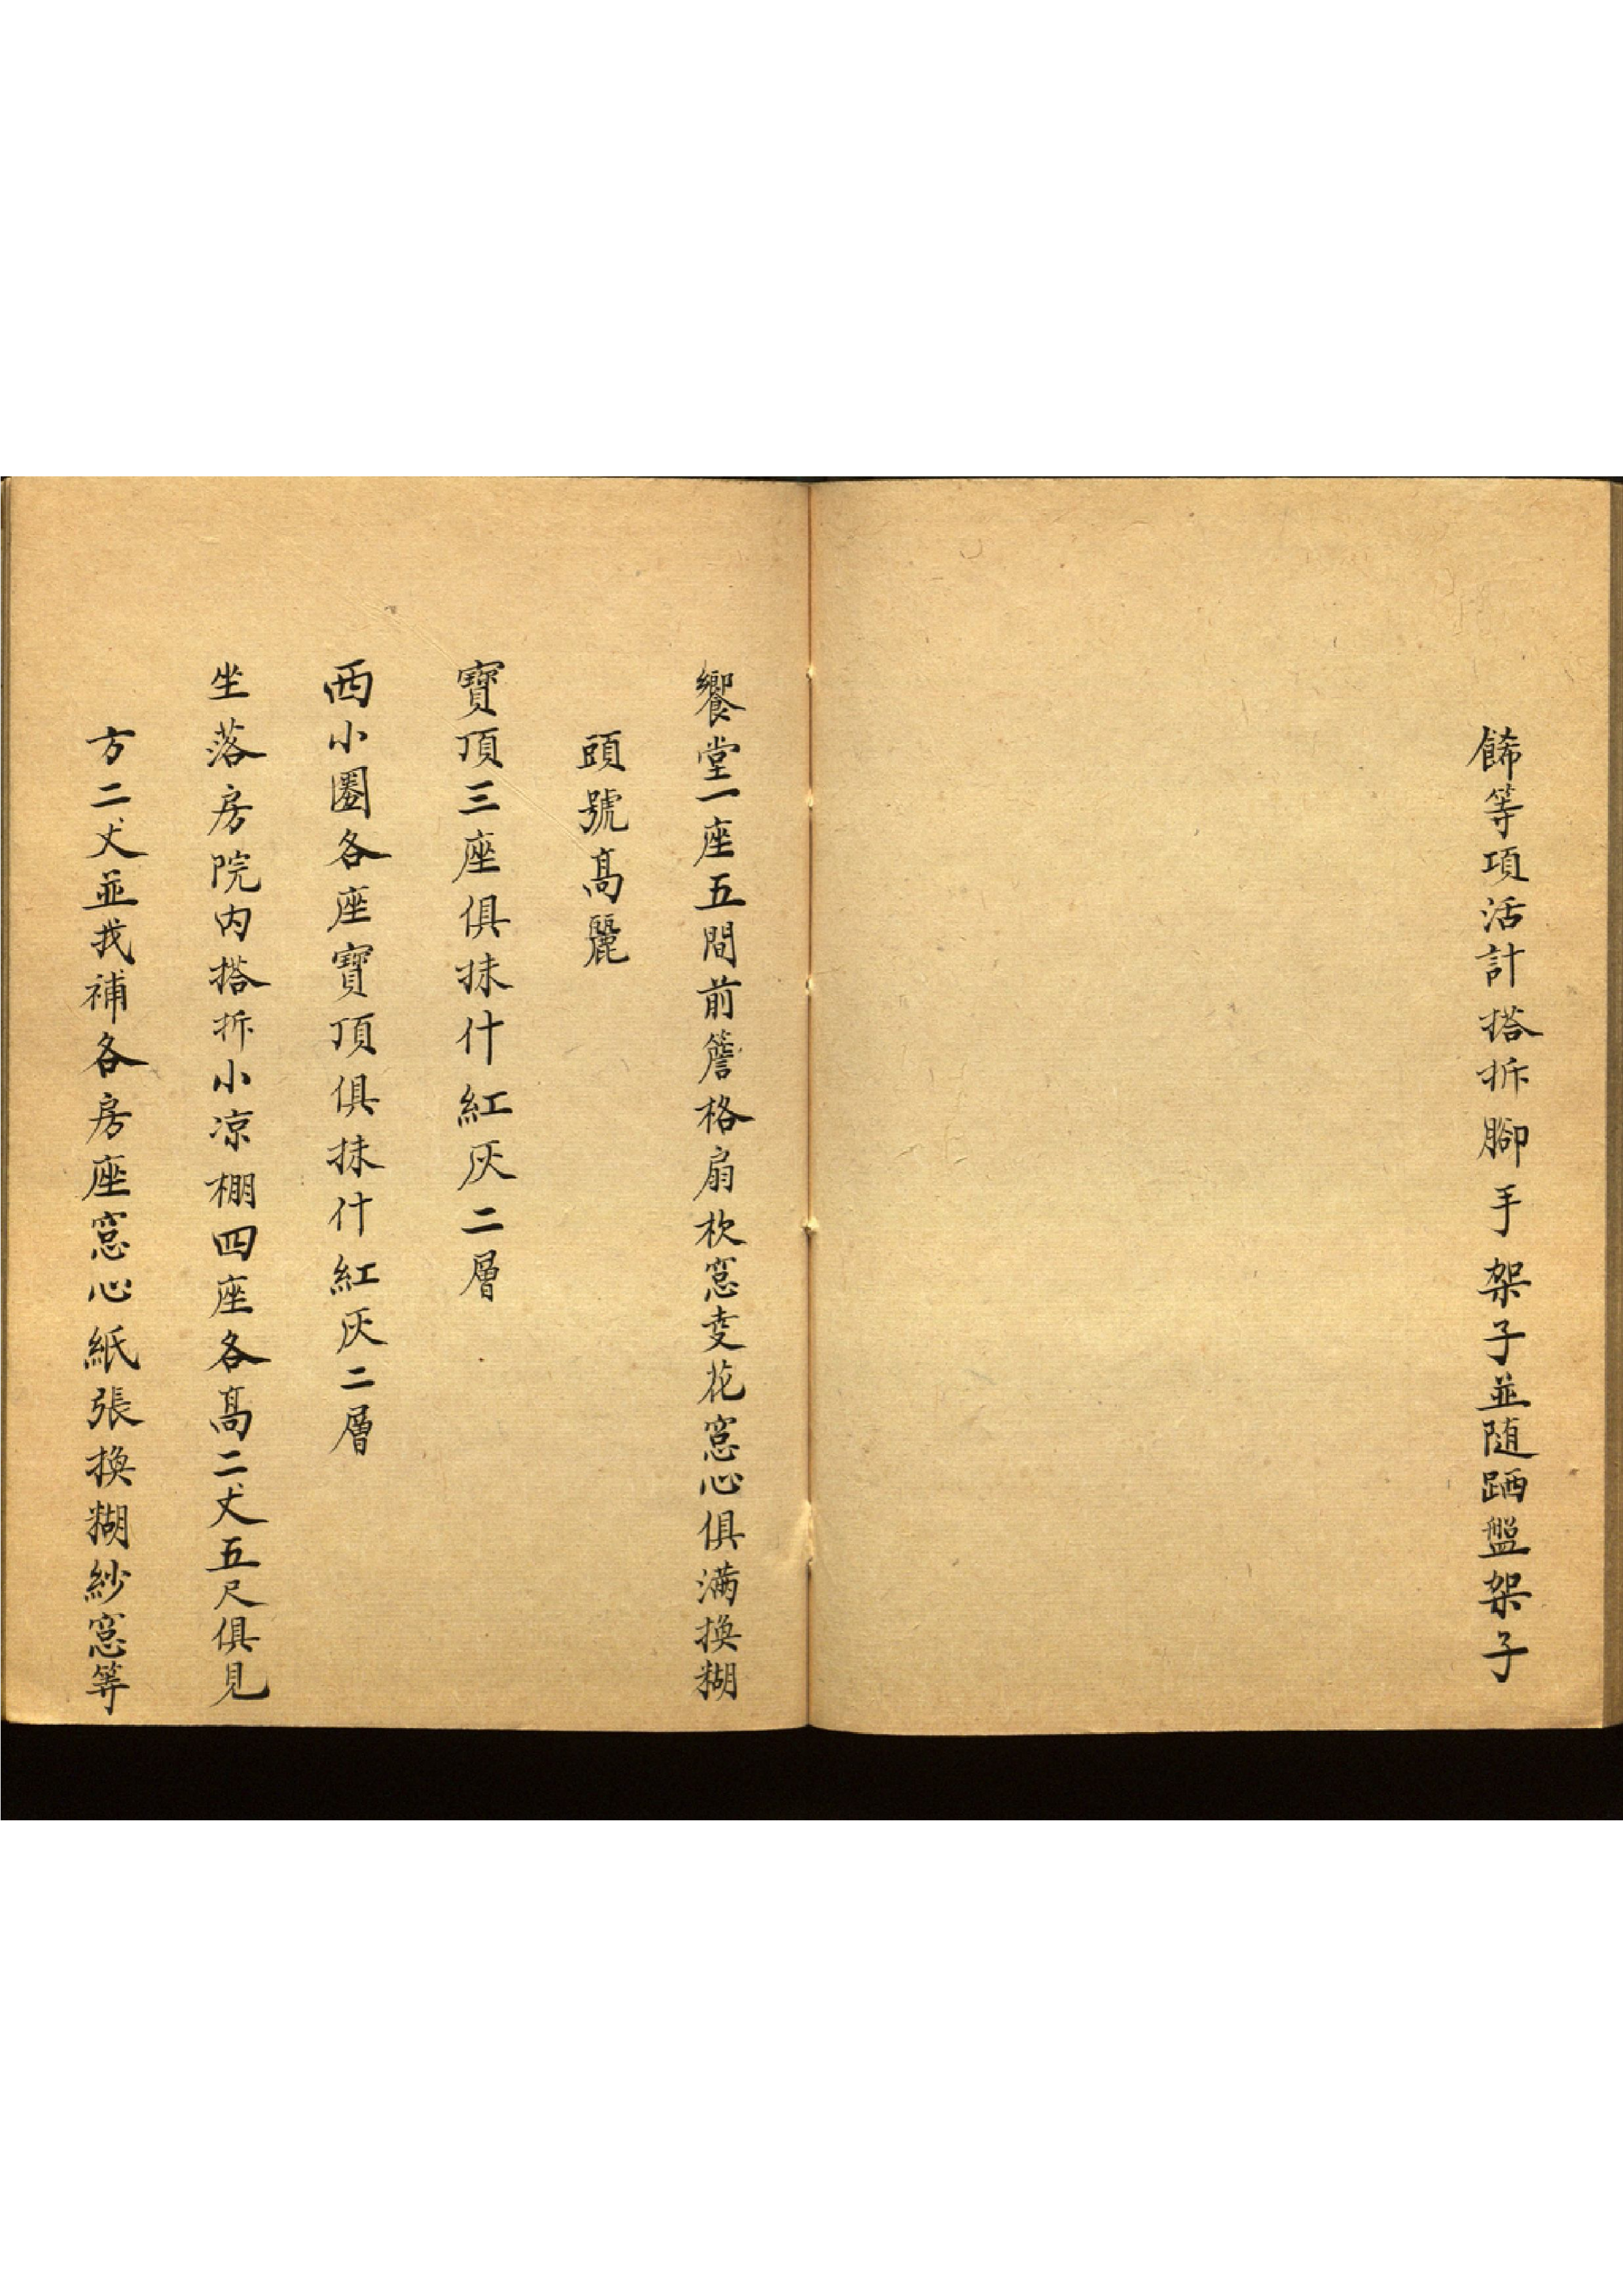 餙等項活計搭拆腳手架子並随跴盤架子
饗堂一座五間前簷格扇杴窓变花窓心俱满換糊
頭號髙麗
寳頂三座俱抹什紅灰二層
西小圏各座寳頂俱抹什紅灰二層
坐落房院内搭拆小凉棚四座各髙二丈五尺俱見
方二丈並找補各房座窓心紙張換糊紗窓等